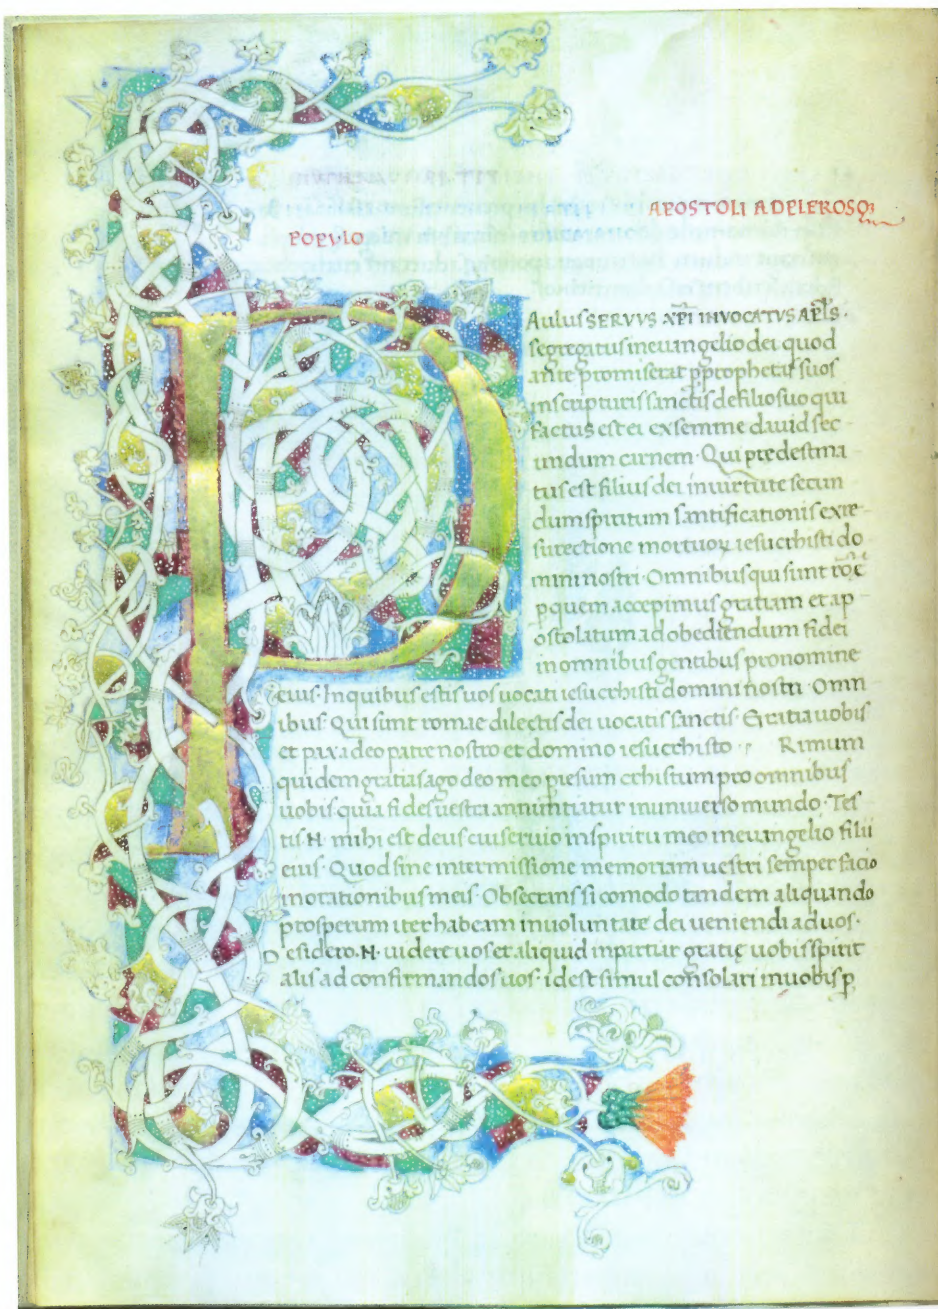 APOSTOLI AD PLEROSQ3
POPVLO
P
Aulus SERVVS XPI INVOCATVS APLS·
segregatus ineuangelio dei quod
ante promiserat p prophetas suos
inscripturis sanctis defiliosuo qui
factus est ei exsemine dauid sec
undum carnem· Qui predestina
tus est filius dei inuirtute secun
dum spiritum santificationis exre-
surectione mortuoꝝ iesu crhisti do
mini nostri· Omnibus qui sunt
p quem accepimus gratiam et ap
ostolatum ad obediendum fidei
in omnibus gentibus pronomine
eius· Inquibus estis uos uocati iesu crhisti domini nostri· Omn
ibus· Qui sunt romae dilectis dei uocatis sanctis· Gratia uobis
et pax a deo patre nostro et domino iesu crhisto Rimum
quidem gratias ago deo meo p iesum crhistum pro omnibus
uobis quia fides uestra annuntiatur inuniuerso mundo· Tes
tis ·N· mihi est deus cui seruio inspiritu meo ineuangelio filii
eius· Quod sine intermissione memoriam uestri semper facio
inorationibus meis· Obsecrans si comodo tandem aliquando
prosperum iter habeam inuoluntate dei ueniendi ad uos·
Desidero ·N· uidere uos et aliquid inpartiar gratię uobis spirit
alis ad confirmandos uos· id est simul consolari inuobis p